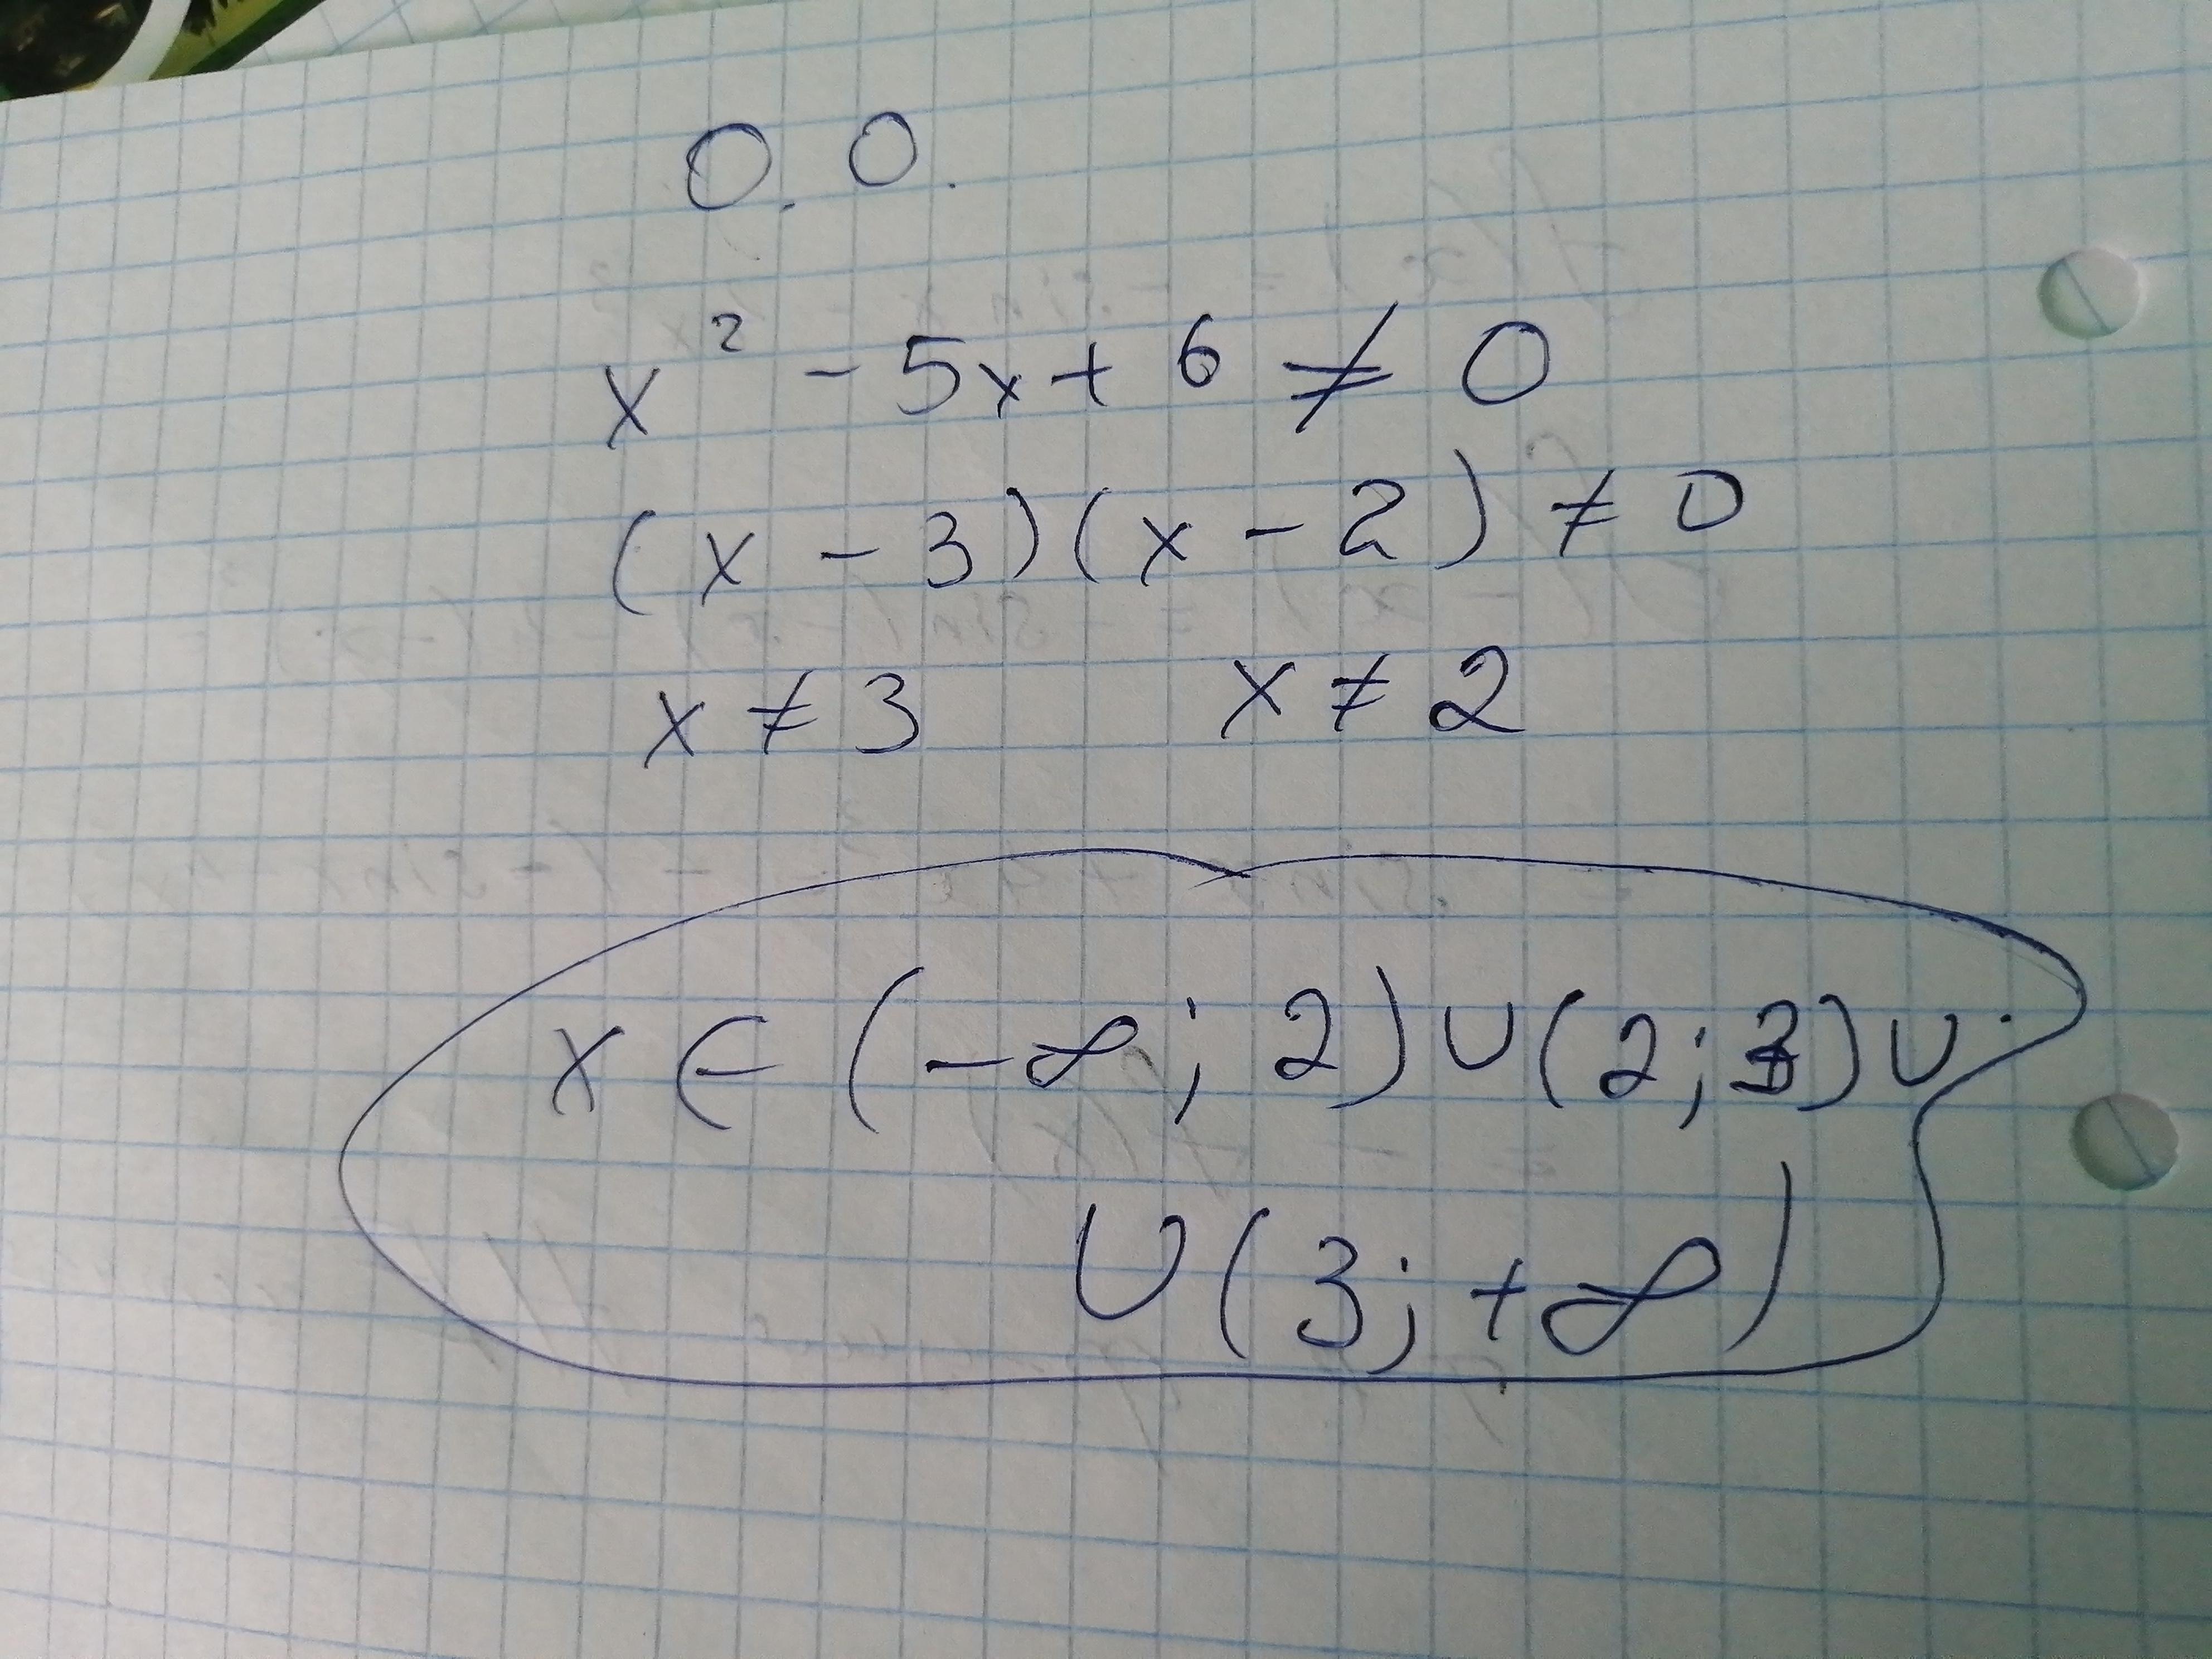 О.О.
x² - 5x + 6 ≠ 0
(x - 3)(x - 2) ≠ 0
x ≠ 3 x ≠ 2
x ∈ (-∞; 2) ∪ (2; 3) ∪
∪ (3; +∞)